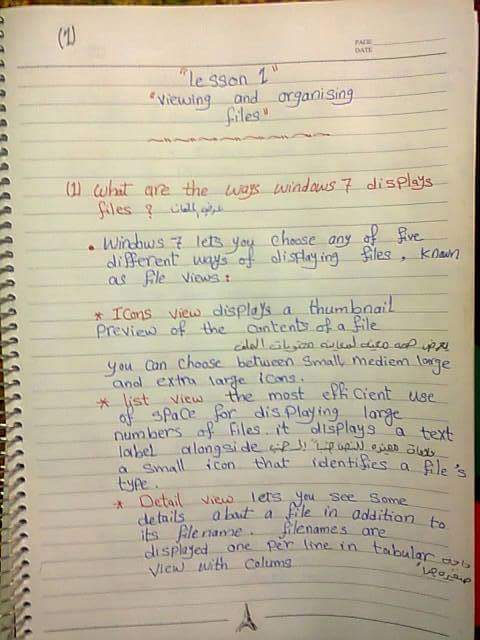 (1)
PAGE
DATE
"lesson 1"
"viewing and organising
files"
(1) what are the ways windows 7 displays
files ? عرض الملفات
• Windows 7 lets you choose any of five
different ways of displaying files, known
as file views:
* Icons view displays a thumbnail
Preview of the contents of a file
يعرض محتويات الملف
you can choose between small, mediem large
and extra large icons.
* list view the most efficient use
of space for displaying large
numbers of files. it displays a text
label alongside
a small icon that identifies a file's
type.
* Detail view lets you see some
details about a file in addition to
its filename. filenames are
displayed one per line in tabular
view with colums